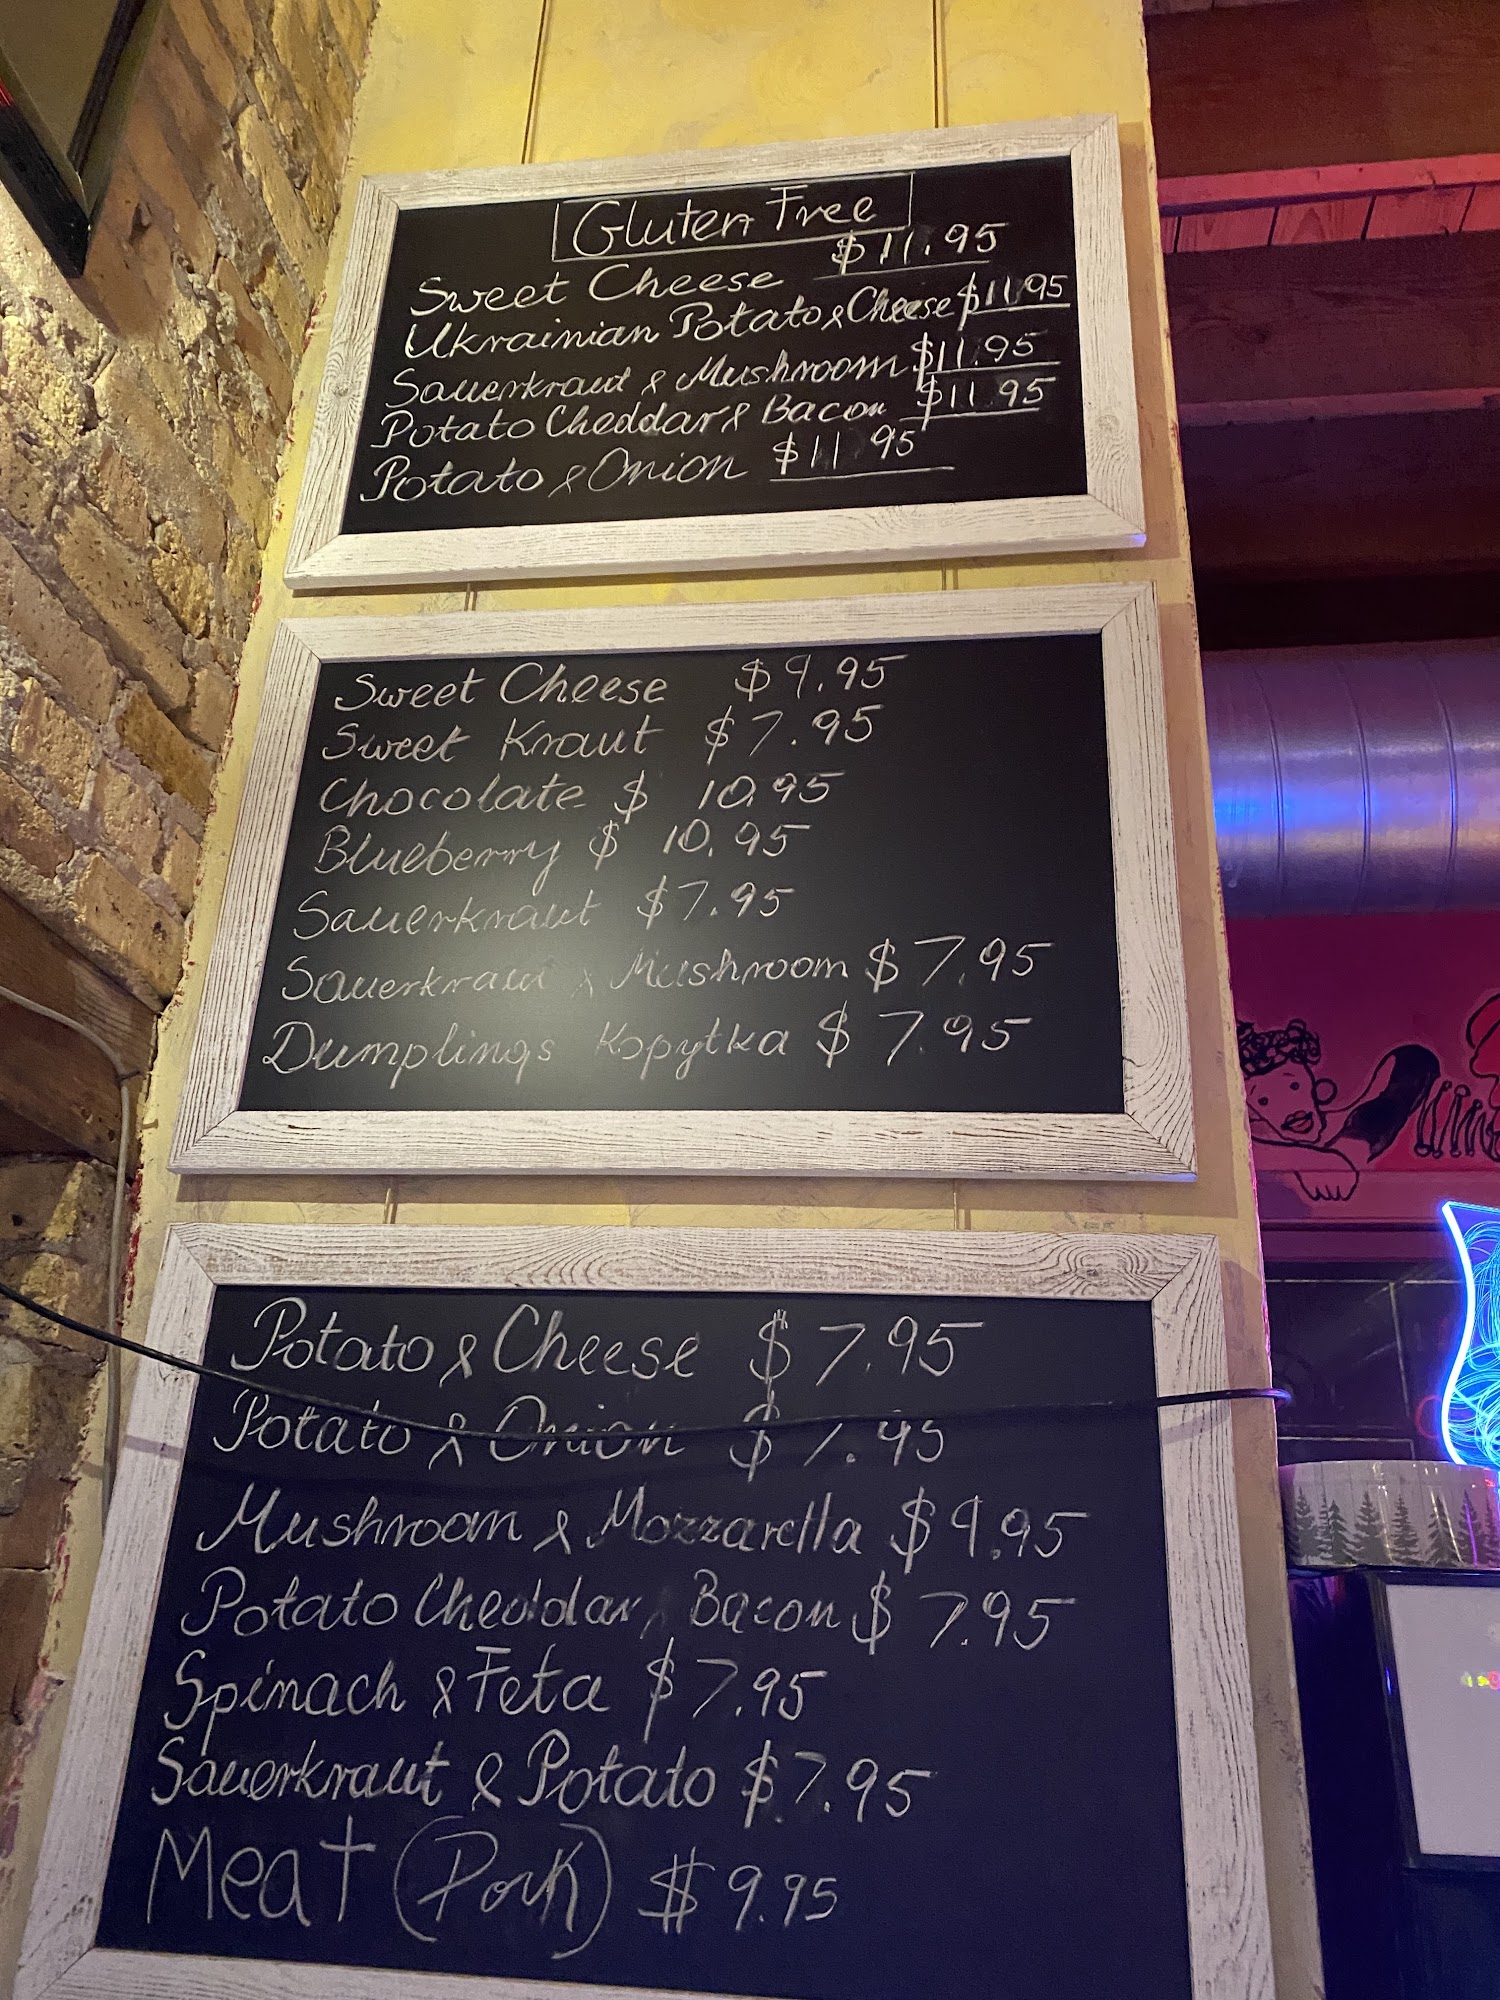 Gluten Free
Sweet Cheese $11.95
Ukrainian Potato & Cheese $11.95
Sauerkraut & Mushroom $11.95
Potato Cheddar & Bacon $11.95
Potato & Onion $11 95
Sweet Cheese $9.95
Sweet Kraut $7.95
Chocolate $ 10.95
Blueberry $ 10.95
Sauerkraut $7.95
Sauerkraut & Mushroom $7.95
Dumplings Kopytka $7.95
Potato & Cheese $7.95
Potato & Onion $7.95
Mushroom & Mozzarella $9.95
Potato Cheddar, Bacon $7.95
Spinach & Feta $7.95
Sauerkraut & Potato $7.95
Meat (Pork) $9.95